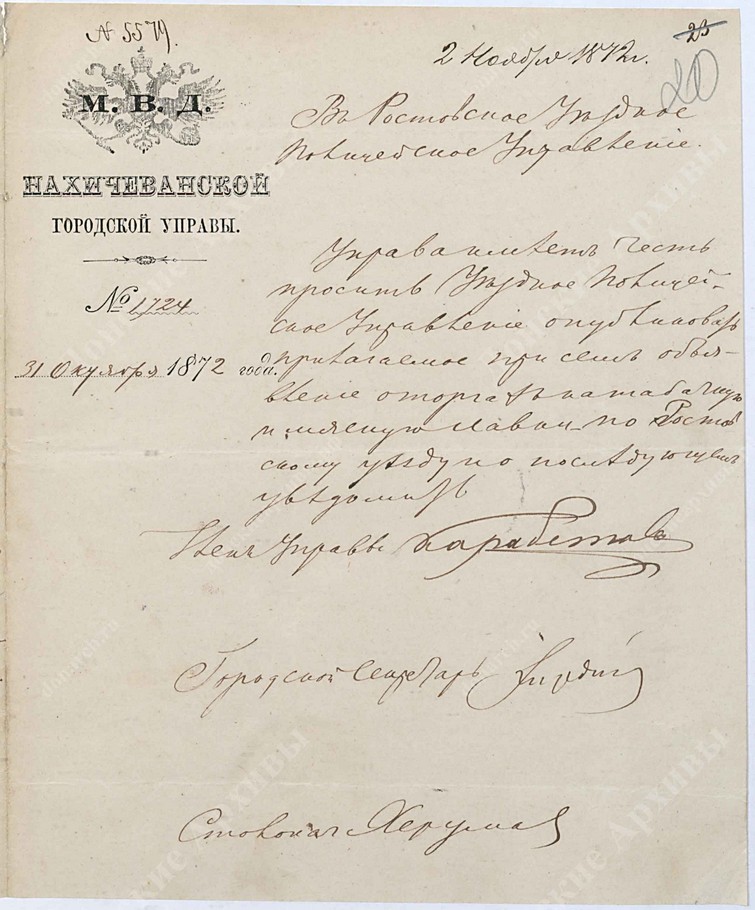 N 5579.
2 Ноября 1872 г.
23
20
М. В. Д.
НАХИЧЕВАНСКОЙ
ГОРОДСКОЙ УПРАВЫ.
№ 1724
31 Октября 1872 года.
Въ Ростовское Уѣздное
Полицейское Управленіе.
Управа имѣетъ честь
просить Уѣздное Полицей-
ское Управленіе опубликовать
прилагаемое при семъ объя-
вленіе о торгахъ на табачную
и мясную лавки по Ростов
скому уѣзду и о послѣдующемъ
увѣдомить
Членъ Управы Карабетовъ
Городской Секретарь
Столонач
donarch.ru